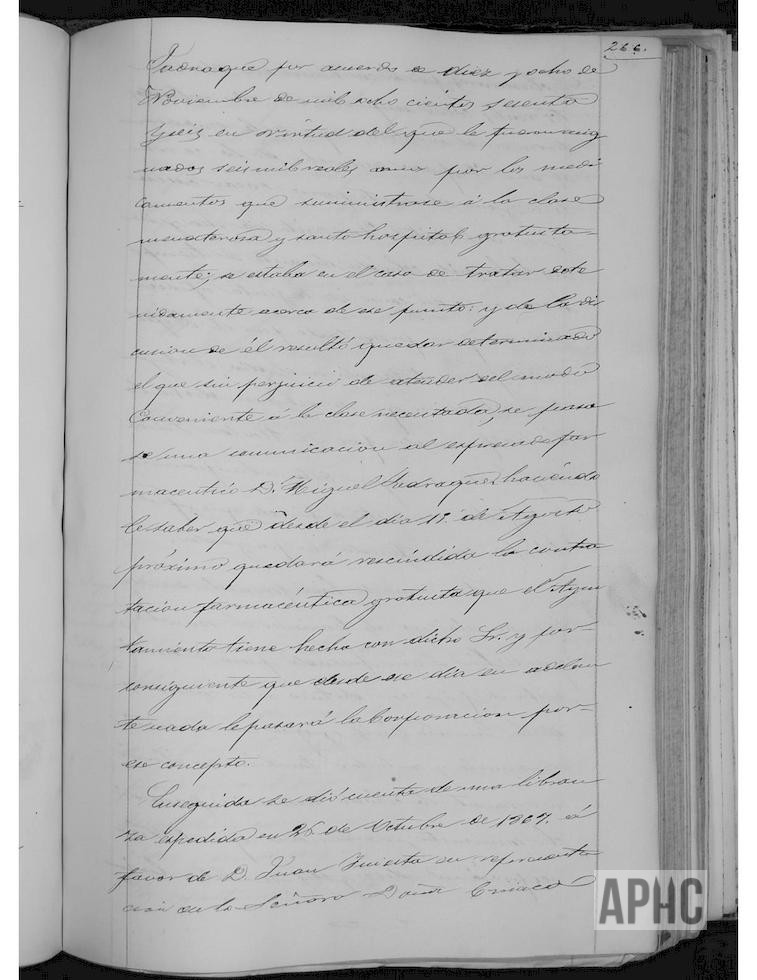 266.
que por acuerdo de diez y ocho de
Noviembre de mil ocho cientos sesenta
y seis en virtud del que le fueron asig
nados seis mil reales por los medi
camentos que suministrase á la clase
menesterosa y santo hospital gratuita-
mente; se estaba en el caso de tratar dete
nidamente acerca de ese punto: y de la dis
cusion de él resultó quedar determinado
el que sin perjuicio de atender del modo
conveniente á la clase necesitada, se pase
se una comunicacion al espresado far
maceutico D. Miguel haciendo
le saber que desde el dia 1º de Agosto
próximo quedará rescindida la contra
tacion farmacéutica gratuita que el Ayun
tamiento tiene hecha con dicho Sr. y por-
consiguiente que desde ese dia en adelan
te nada le pasará la Corporacion por-
ese concepto.
Enseguida se dió cuenta de una libran
za espedida en 26 de Octubre de 1867. á
favor de D. Juan en representa
cion de la Señora
APHC